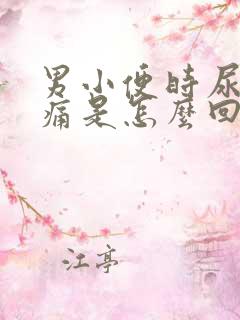 男小便時尿
痛是怎麼回
江亭